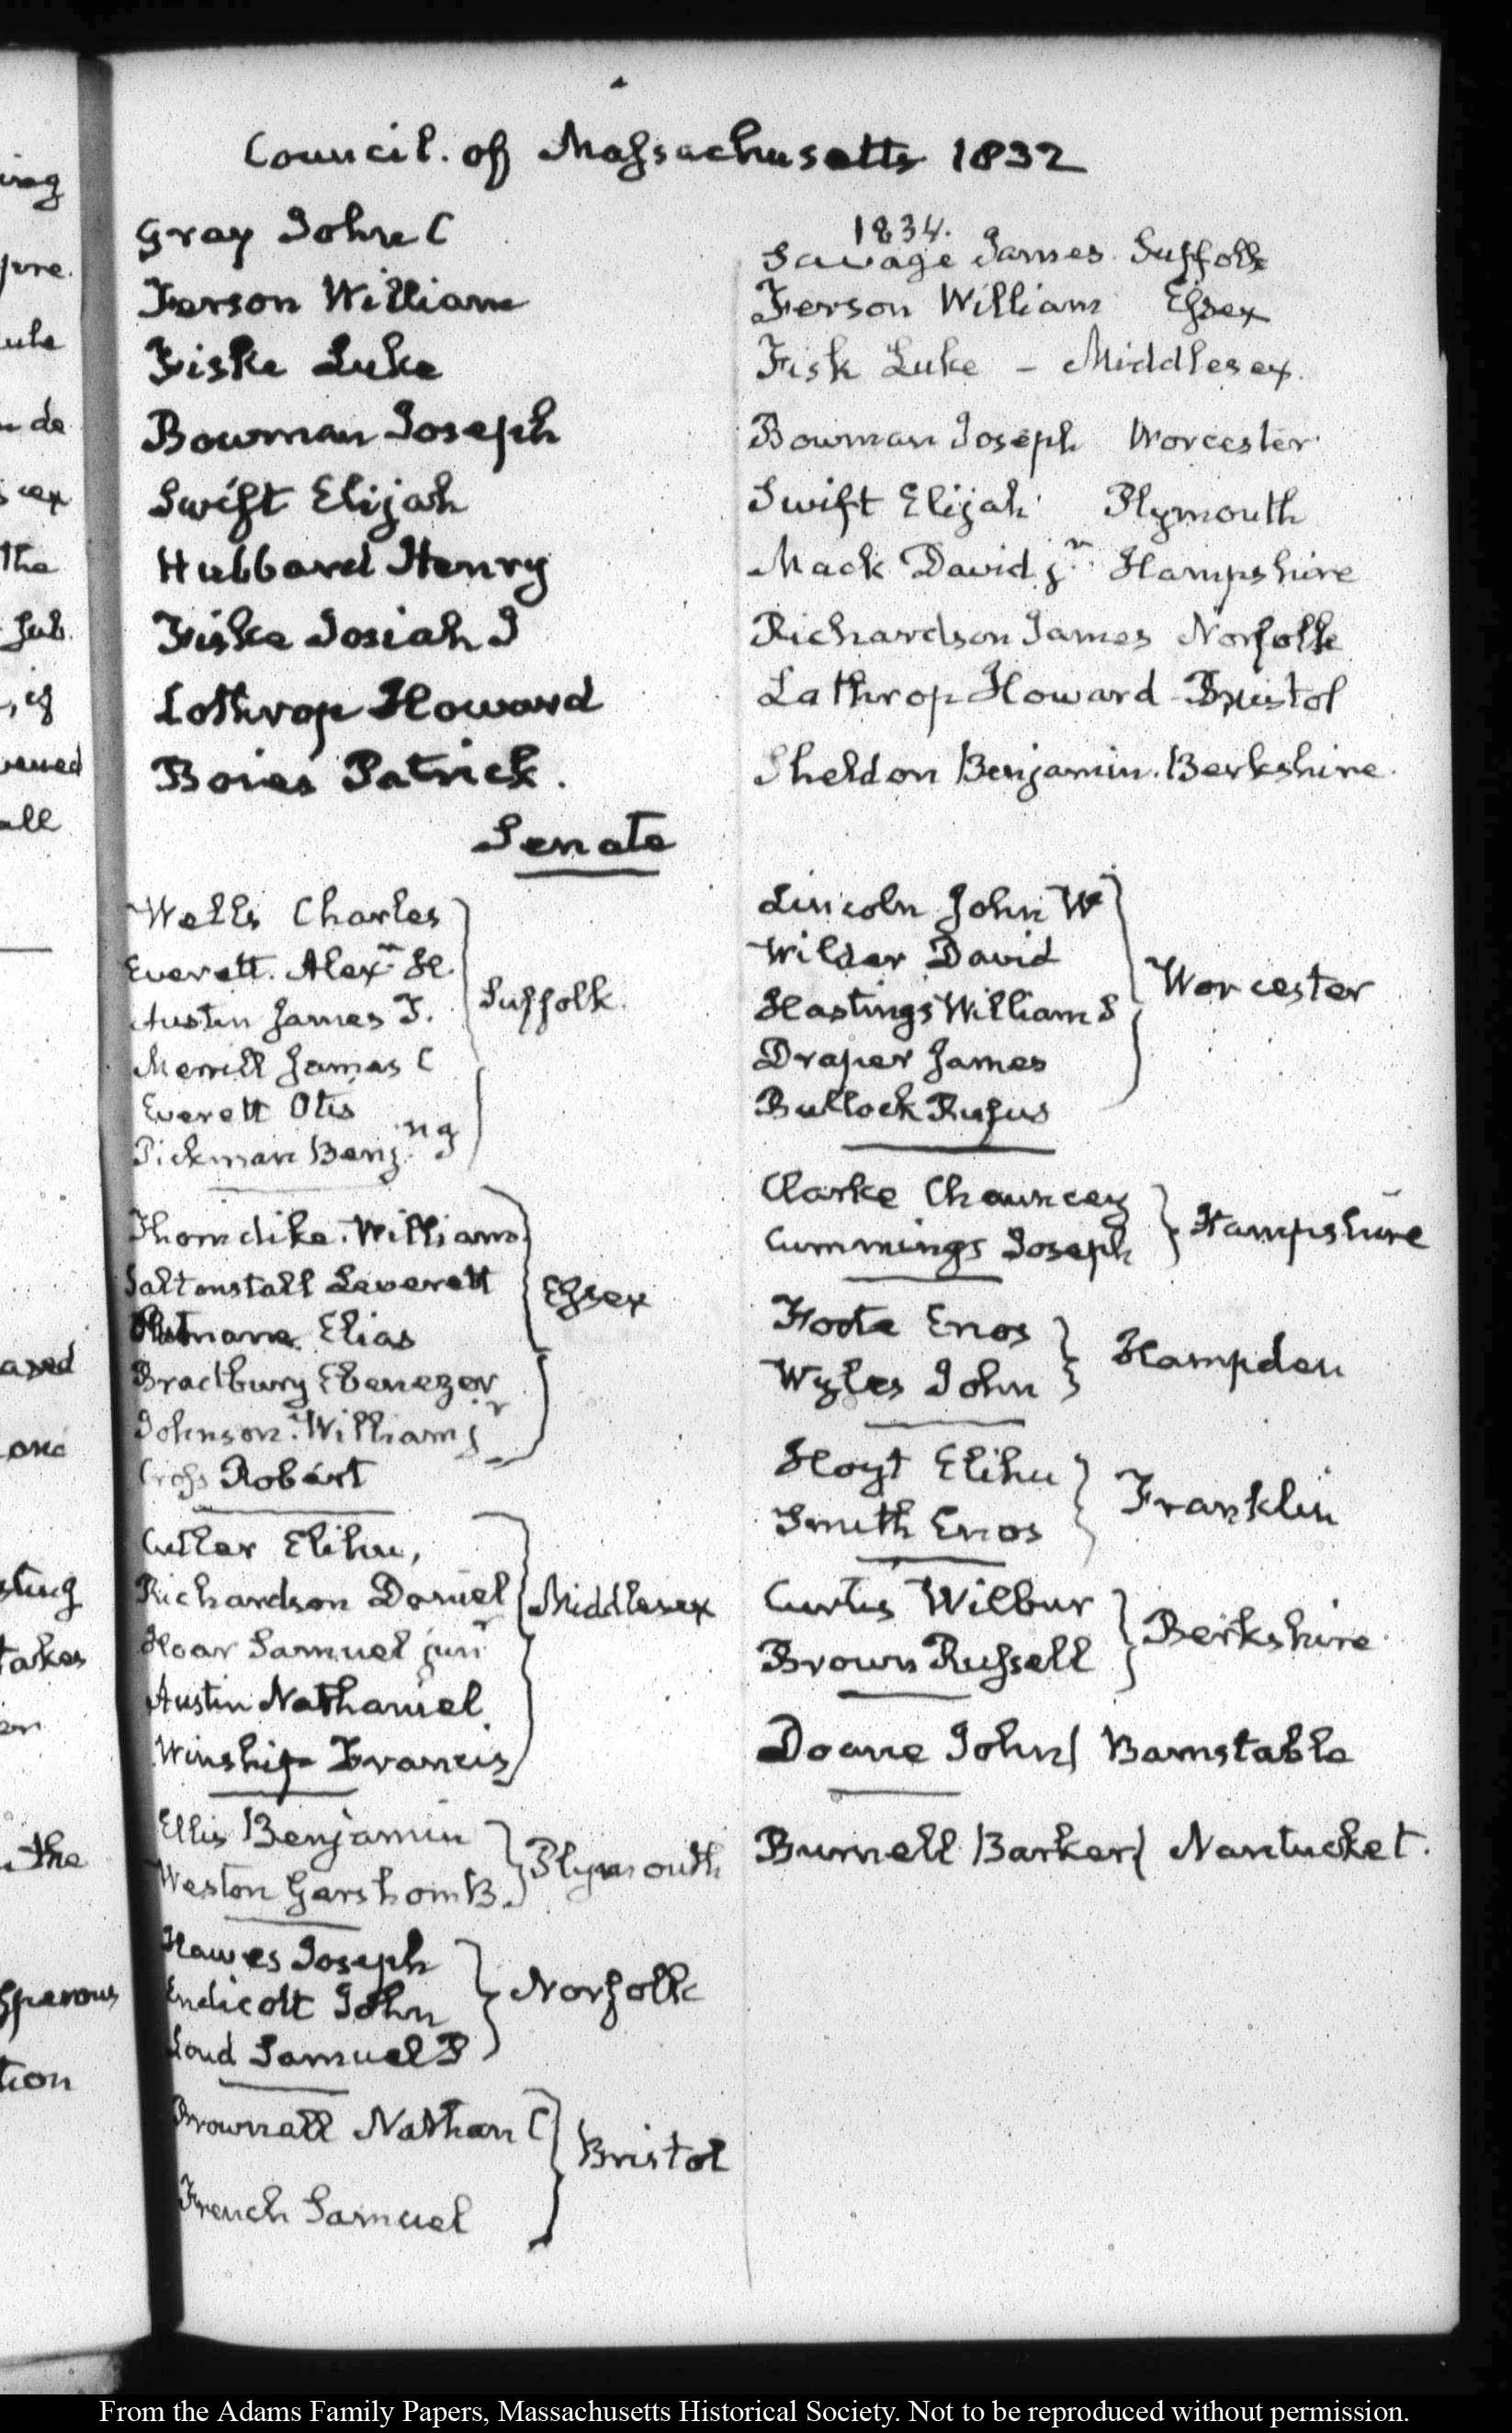 Council. of Massachusetts 1832
Gray John C
Ferson William
Fiske Luke
Bowman Joseph
Swift Elijah
Hubbard Henry
Fiske Josiah J
Lothrop Howard
Boies Patrick.
1834.
Savage James. Suffolk
Ferson William Essex
Fisk Luke – Middlesex.
Bowman Joseph Worcester
Swift Elijah Plymouth
Mack David jr. Hampshire
Richardson James Norfolk
Lathrop Howard Bristol
Sheldon Benjamin. Berkshire.
Senate
Wells Charles
Everett. Alexr. H.
Austin James T.
Merrill James C
Everett Otis
Pickman Benjn. T
Suffolk.
Thorndike. William
Saltonstall Leverett
Putnam Elias
Bradbury Ebenezer
Johnson. William jr
Cross Robert
Essex
Cutler Elihu,
Richardson Daniel
Hoar Samuel junr
Austin Nathaniel
Winship Francis
Middlesex
Ellis Benjamin
Weston Gershom B.
Plymouth
Hawes Joseph
Endicott John
Loud Samuel P
Norfolk
Brownell Nathan C
French Samuel
Bristol
Lincoln John W
Wilder David
Hastings William S
Draper James
Bullock Rufus
Worcester
Clarke Chauncey
Cummings Joseph
Hampshire
Foote Enos
Wyles John
Hampden
Hoyt Elihu
Smith Enos
Franklin
Curtis Wilbur
Brown Russell
Berkshire.
Doane John Barnstable
Burnell Barker Nantucket.
ing
ule
the
all
ased
one
takes
the
tion
From the Adams Family Papers, Massachusetts Historical Society. Not to be reproduced without permission.